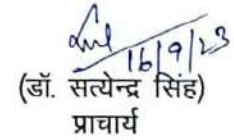 16/9/23
(डॉ. सत्येन्द्र सिंह)
प्राचार्य